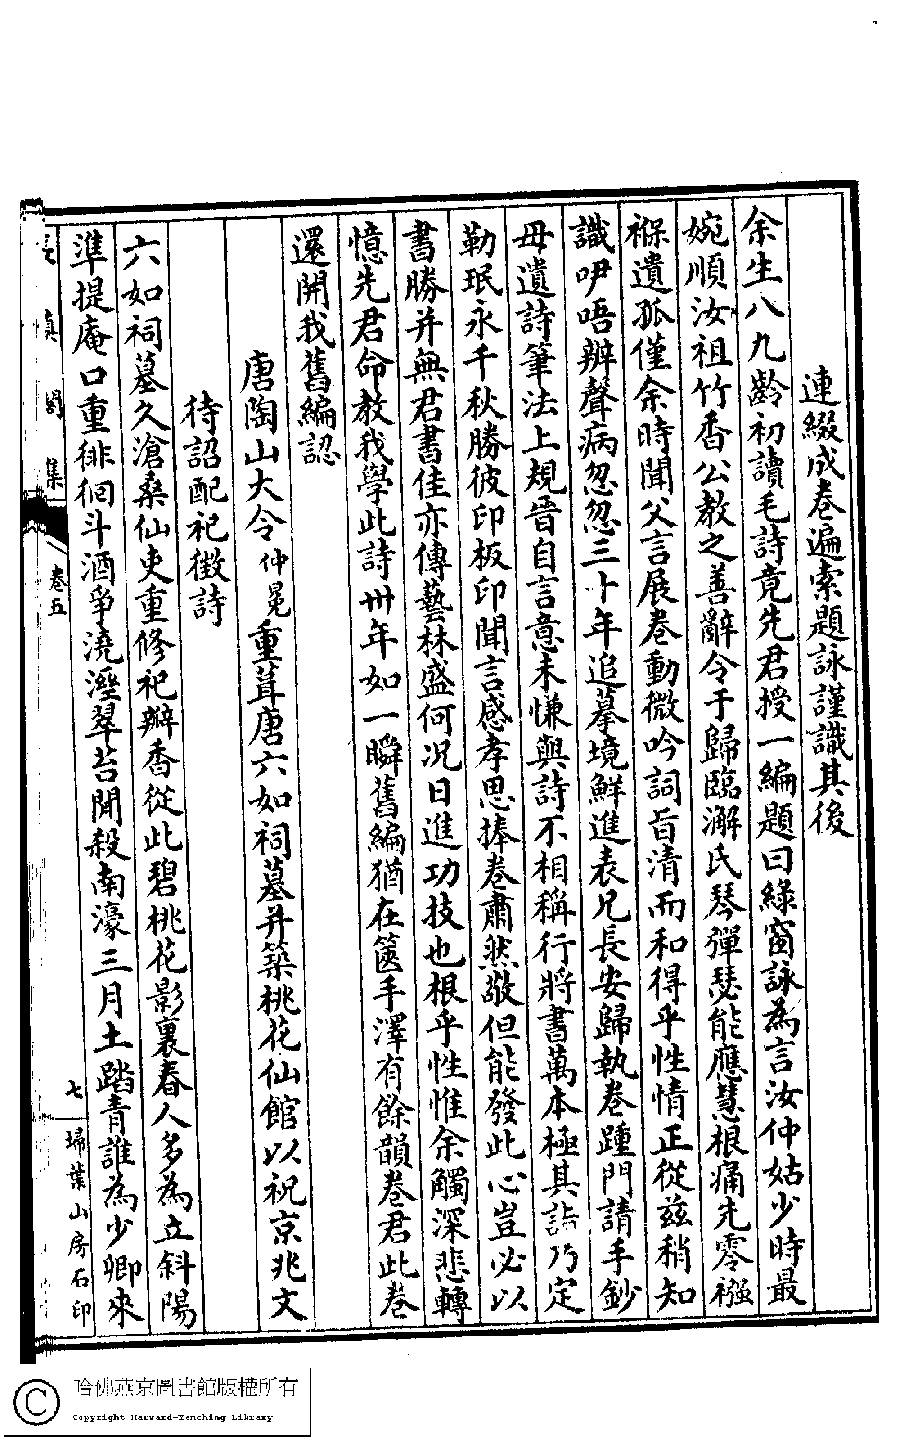 連綴成卷遍索題詠謹識其後
余生八九齡初讀毛詩竟先君授一編題曰綠窗詠為言汝仲姑少時最
婉順汝祖竹香公教之善辭令于歸臨澥氏琴彈瑟能應慧根痛先零襁
褓遺孤僅余時聞父言展卷動微吟詞旨清而和得乎性情正從茲稍知
識咿唔辨聲病忽忽三十年追摹境鮮進表兄長安歸執卷踵門請手鈔
母遺詩筆法上規晉自言意未慊與詩不相稱行將書萬本極其詣乃定
勒珉永千秋勝彼印板印聞言感孝思捧卷肅然敬但能發此心豈必以
書勝并無君書佳亦傳藝林盛何况日進功技也根乎性惟余觸深悲轉
憶先君命教我學此詩卅年如一瞬舊編猶在篋手澤有餘韻卷君此卷
還開我舊編認
唐陶山大令仲冕重葺唐六如祠墓并築桃花仙館以祝京兆文
待詔配祀徵詩
六如祠墓久滄桑仙吏重修祀瓣香從此碧桃花影裏春人多為立斜陽
準提庵口重徘徊斗酒爭澆溼翠苔聞殺南濠三月土踏青誰為少卿來
長真閣集
卷五
七
埽葉山房石印
哈佛燕京圖書館版權所有
Copyright Harvard-Yenching Library